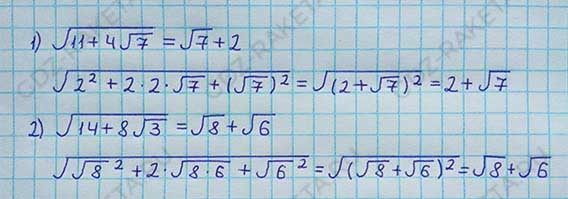 1) √(11 + 4√7) = √7 + 2
√(2² + 2·2·√7 + (√7)²) = √((2 + √7)²) = 2 + √7
2) √(14 + 8√3) = √8 + √6
√(√8² + 2·√(8·6) + √6²) = √((√8 + √6)²) = √8 + √6